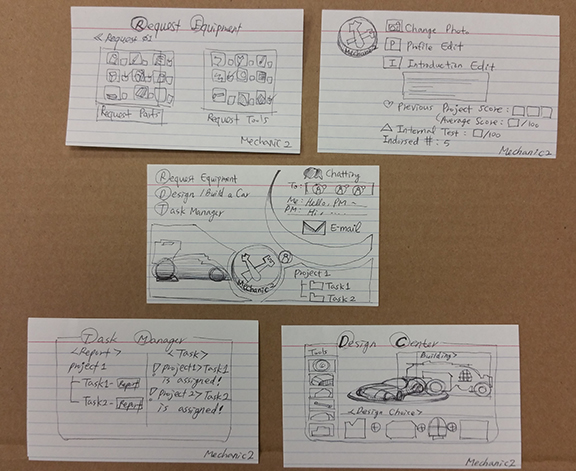 Request Equipment
<Request 01
Request Parts
Request Tools
Mechanic2
Mechanic2
Change Photo
P Profile Edit
I Introduction Edit
Previous Project Score :
(Average Score : /100
Internal Test : /100
Indorsed # : 5
Mechanic2
Request Equipment
Design / Build a Car
Task Manager
Chatting
To:
Me: Hello, PM ~
PM: Hi, ....
E-mail
Mechanic2
Project 1
Task1
Task 2
Task Manager
<Report>
project 1
Task1- Report
Task2- Report
<Task>
! project1>Task1
is assigned!
! project2>Task2
is assigned!
Mechanic2
Design Center
Tools
Building>
<Design Choice>
Mechanic2